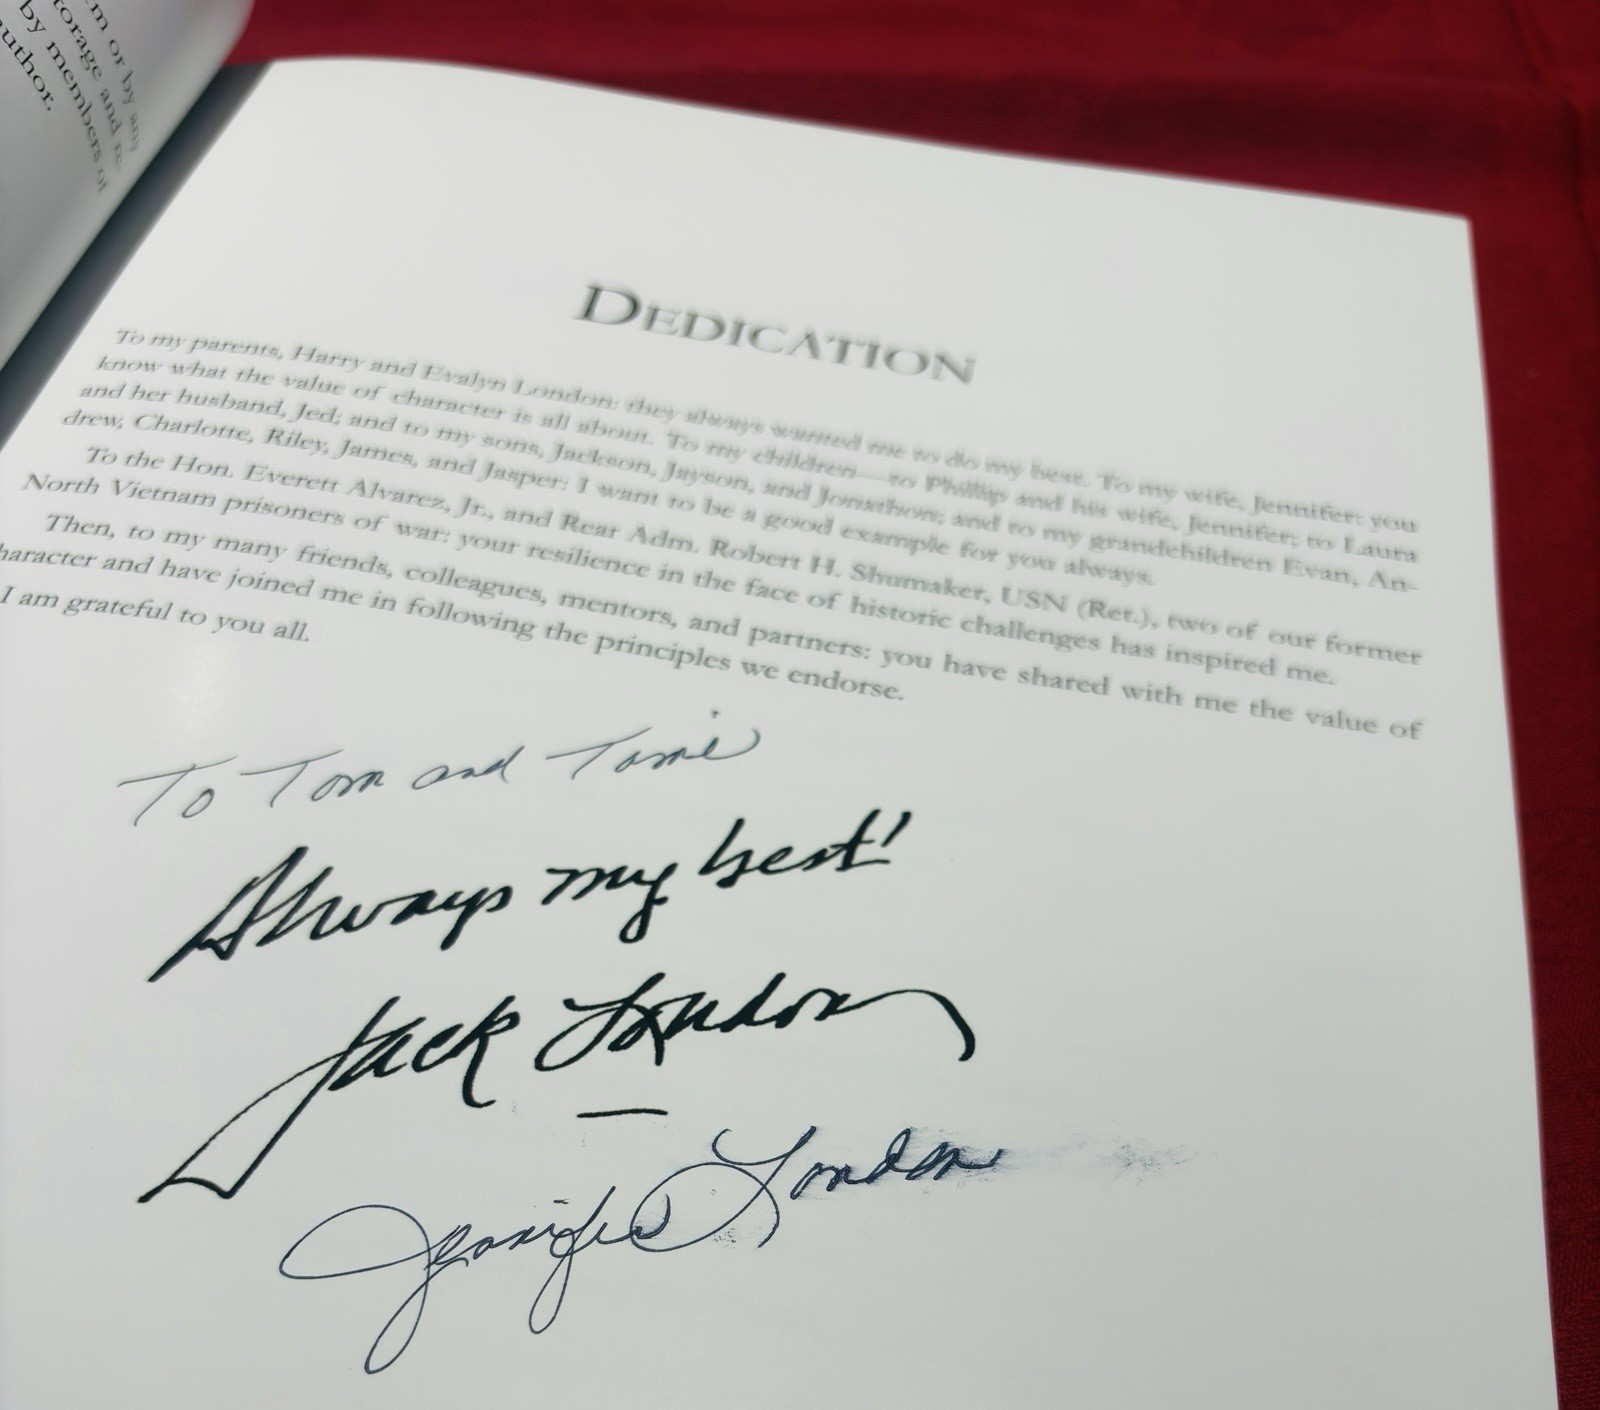 m or by any
torage and re-
by members of
author.
DEDICATION
To my parents, Harry and Evalyn London: they always wanted me to do my best. To my wife, Jennifer: you
know what the value of character is all about. To my children—to Phillip and his wife, Jennifer; to Laura
and her husband, Jed; and to my sons, Jackson, Jayson, and Jonathon; and to my grandchildren Evan, An-
drew, Charlotte, Riley, James, and Jasper: I want to be a good example for you always.
To the Hon. Everett Alvarez, Jr., and Rear Adm. Robert H. Shumaker, USN (Ret.), two of our former
North Vietnam prisoners of war: your resilience in the face of historic challenges has inspired me.
Then, to my many friends, colleagues, mentors, and partners: you have shared with me the value of
haracter and have joined me in following the principles we endorse.
I am grateful to you all.
To Tom and Tami
Always my best!
Jack London
Jennifer London